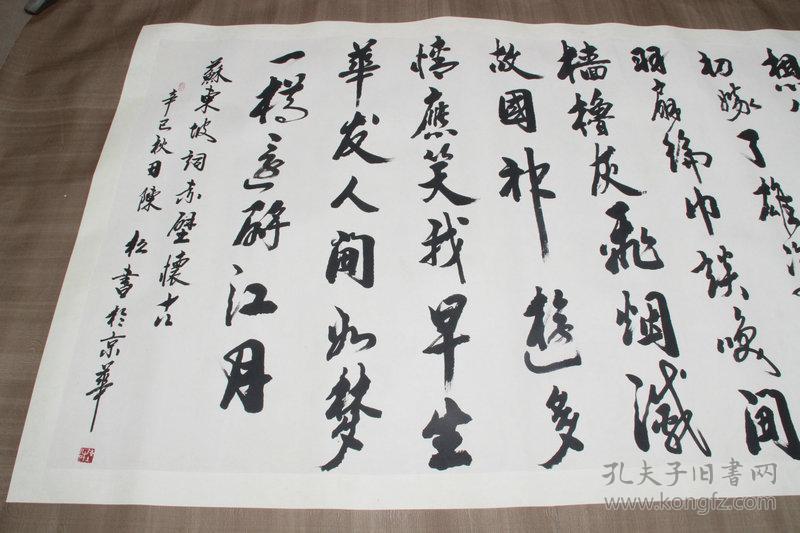 想
初嫁了雄姿
羽扇綸巾談咲间
檣櫓灰飛烟滅
故國神遊多
情應笑我早生
華发人间如梦
一樽還酹江月
蘇東坡詞赤壁懷古
辛巳秋月陳松書於京華
孔夫子旧書网
www.kongfz.com